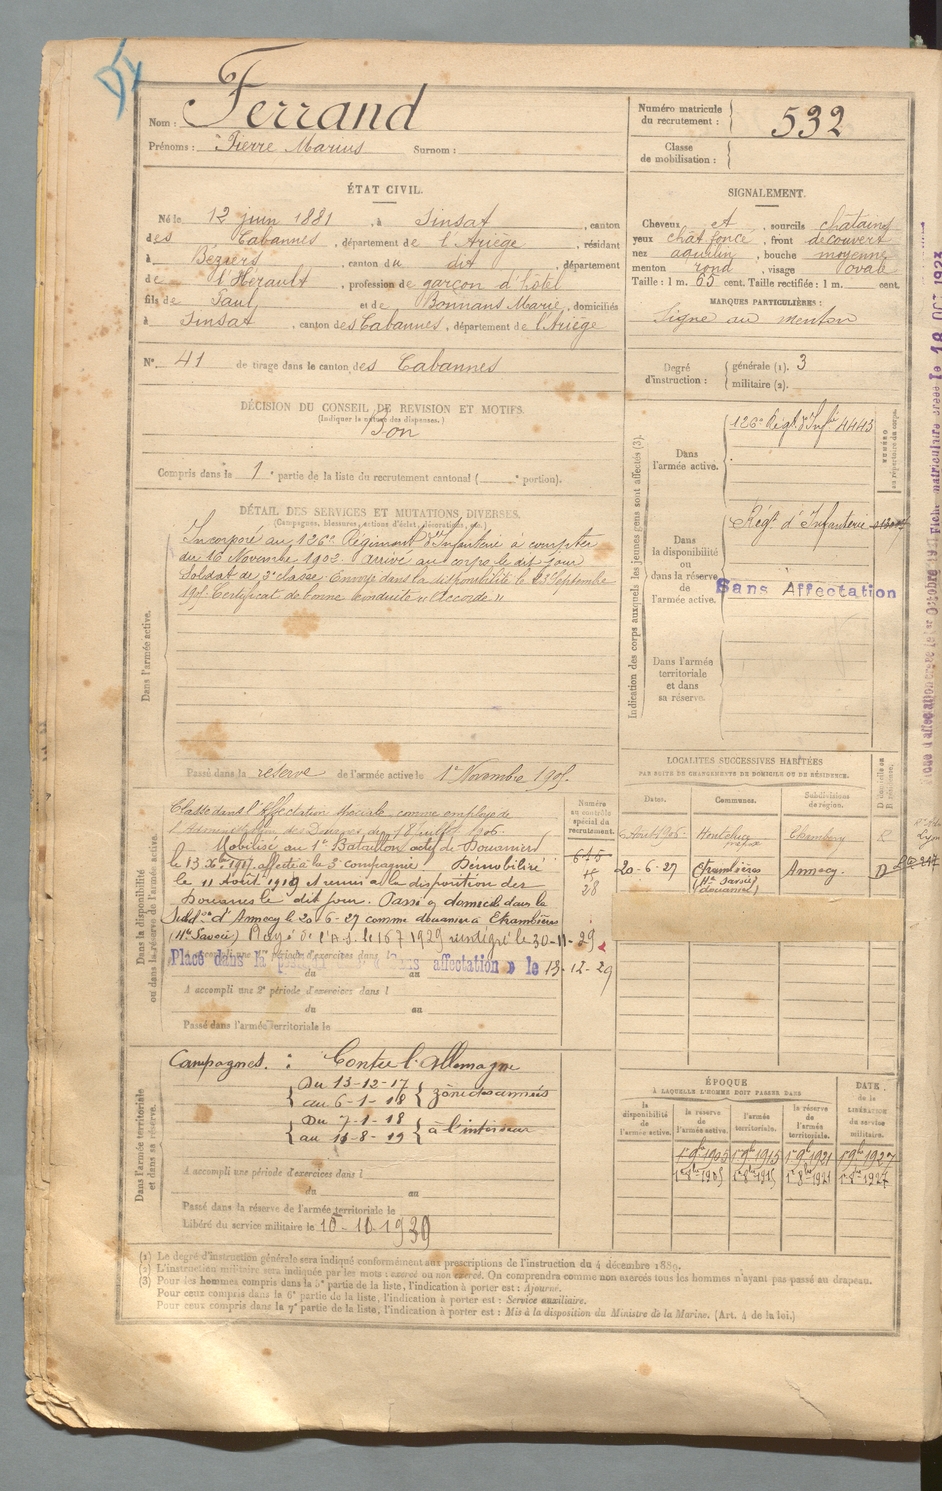 Nom : Ferrand
Prénoms : Pierre Marius Surnom :
Numéro matricule du recrutement : 532
Classe de mobilisation :
ÉTAT CIVIL.
Né le 12 juin 1881, à Sinsat, canton
des Cabannes, département de l'Ariège, résidant
à Béziers, canton du dit, département
de l'Hérault, profession de garçon d'hôtel
fils de Paul et de Bonnans Marie, domiciliés
à Sinsat, canton des Cabannes, département de l'Ariège
N° 41 de tirage dans le canton des Cabannes
SIGNALEMENT.
Cheveux et, sourcils châtains
yeux chât foncé, front découvert
nez aquilin, bouche moyenne
menton rond, visage ovale
Taille : 1 m. 65 cent. Taille rectifiée : 1 m. cent.
MARQUES PARTICULIÈRES :
Signe au menton
Degré d'instruction : générale (1). 3
militaire (2).
DÉCISION DU CONSEIL DE REVISION ET MOTIFS.
(Indiquer la nature des dispenses.)
Bon
Compris dans la 1e partie de la liste du recrutement cantonal ( e portion).
DÉTAIL DES SERVICES ET MUTATIONS DIVERSES.
(Campagnes, blessures, actions d'éclat, décorations, etc.)
Dans l'armée active.
Incorporé au 126e Régiment d'Infanterie à compter
du 16 Novembre 1902 arrivé au corps le dit jour
Soldat de 2e classe. Envoyé dans la disponibilité le 23 Septembre
1905 Certificat de bonne conduite "Accordé"
Passé dans la réserve de l'armée active le 1er Novembre 1905
Indication des corps auxquels les jeunes gens sont affectés (3).
Dans l'armée active.
126e Régt d'Infie 4443
NUMÉRO au répertoire du corps.
Dans la disponibilité ou dans la réserve de l'armée active.
Régt d'Infanterie
Sans Affectation
Dans l'armée territoriale et dans sa réserve.
LOCALITÉS SUCCESSIVES HABITÉES
PAR SUITE DE CHANGEMENTS DE DOMICILE OU DE RÉSIDENCE.
Dates. Communes. Subdivisions de région. D domicile ou R résidence.
Chambéry R
20-6-27 Etrambières (Hte Savoie) (douanier) Annecy. D
Dans la disponibilité ou dans la réserve de l'armée active.
Numéro au contrôle spécial du recrutement.
Classé dans l'affectation spéciale comme employé de
l'Administration des Douanes
Mobilisé au 1er Bataillon actif de Douaniers
le 13 Xbre 1917, affecté à la 3e compagnie. Démobilisé
le 11 Août 1919 et remis à la disposition des
Douanes le dit jour. Passé à domicile dans la
Subdon d'Annecy le 20-6-27 comme douanier à Etrambières
(Hte Savoie) Rayé de l'A.S. le 1 6 7 1929 réintégré le 30-11-29
Placé dans la "Sans affectation" le 13-12-29
A accompli une 2e période d'exercices dans l
du au
Passé dans l'armée territoriale le
Dans l'armée territoriale et dans sa réserve.
Campagnes. : Contre l'Allemagne
Du 13-12-17
au 6-1-18 zône des armées
Du 7-1-18
au 10-8-19 à l'intérieur
A accompli une période d'exercices dans l
du au
Passé dans la réserve de l'armée territoriale le
Libéré du service militaire le 10-10-1930
ÉPOQUE
À LAQUELLE L'HOMME DOIT PASSER DANS
DATE de la LIBÉRATION du service militaire.
la disponibilité de l'armée active. la réserve de l'armée active. l'armée territoriale. la réserve de l'armée territoriale.
1er 9bre 1905 1er 9bre 1915 1er 9bre 1921 1er 9bre 1927
(1) Le degré d'instruction générale sera indiqué conformément aux prescriptions de l'instruction du 4 décembre 1889.
(2) L'instruction militaire sera indiquée par les mots : exercé ou non exercé. On comprendra comme non exercés tous les hommes n'ayant pas passé au drapeau.
(3) Pour les hommes compris dans la 5e partie de la liste, l'indication à porter est : Ajourné.
Pour ceux compris dans la 6e partie de la liste, l'indication à porter est : Service auxiliaire.
Pour ceux compris dans la 7e partie de la liste, l'indication à porter est : Mis à la disposition du Ministre de la Marine. (Art. 4 de la loi.)